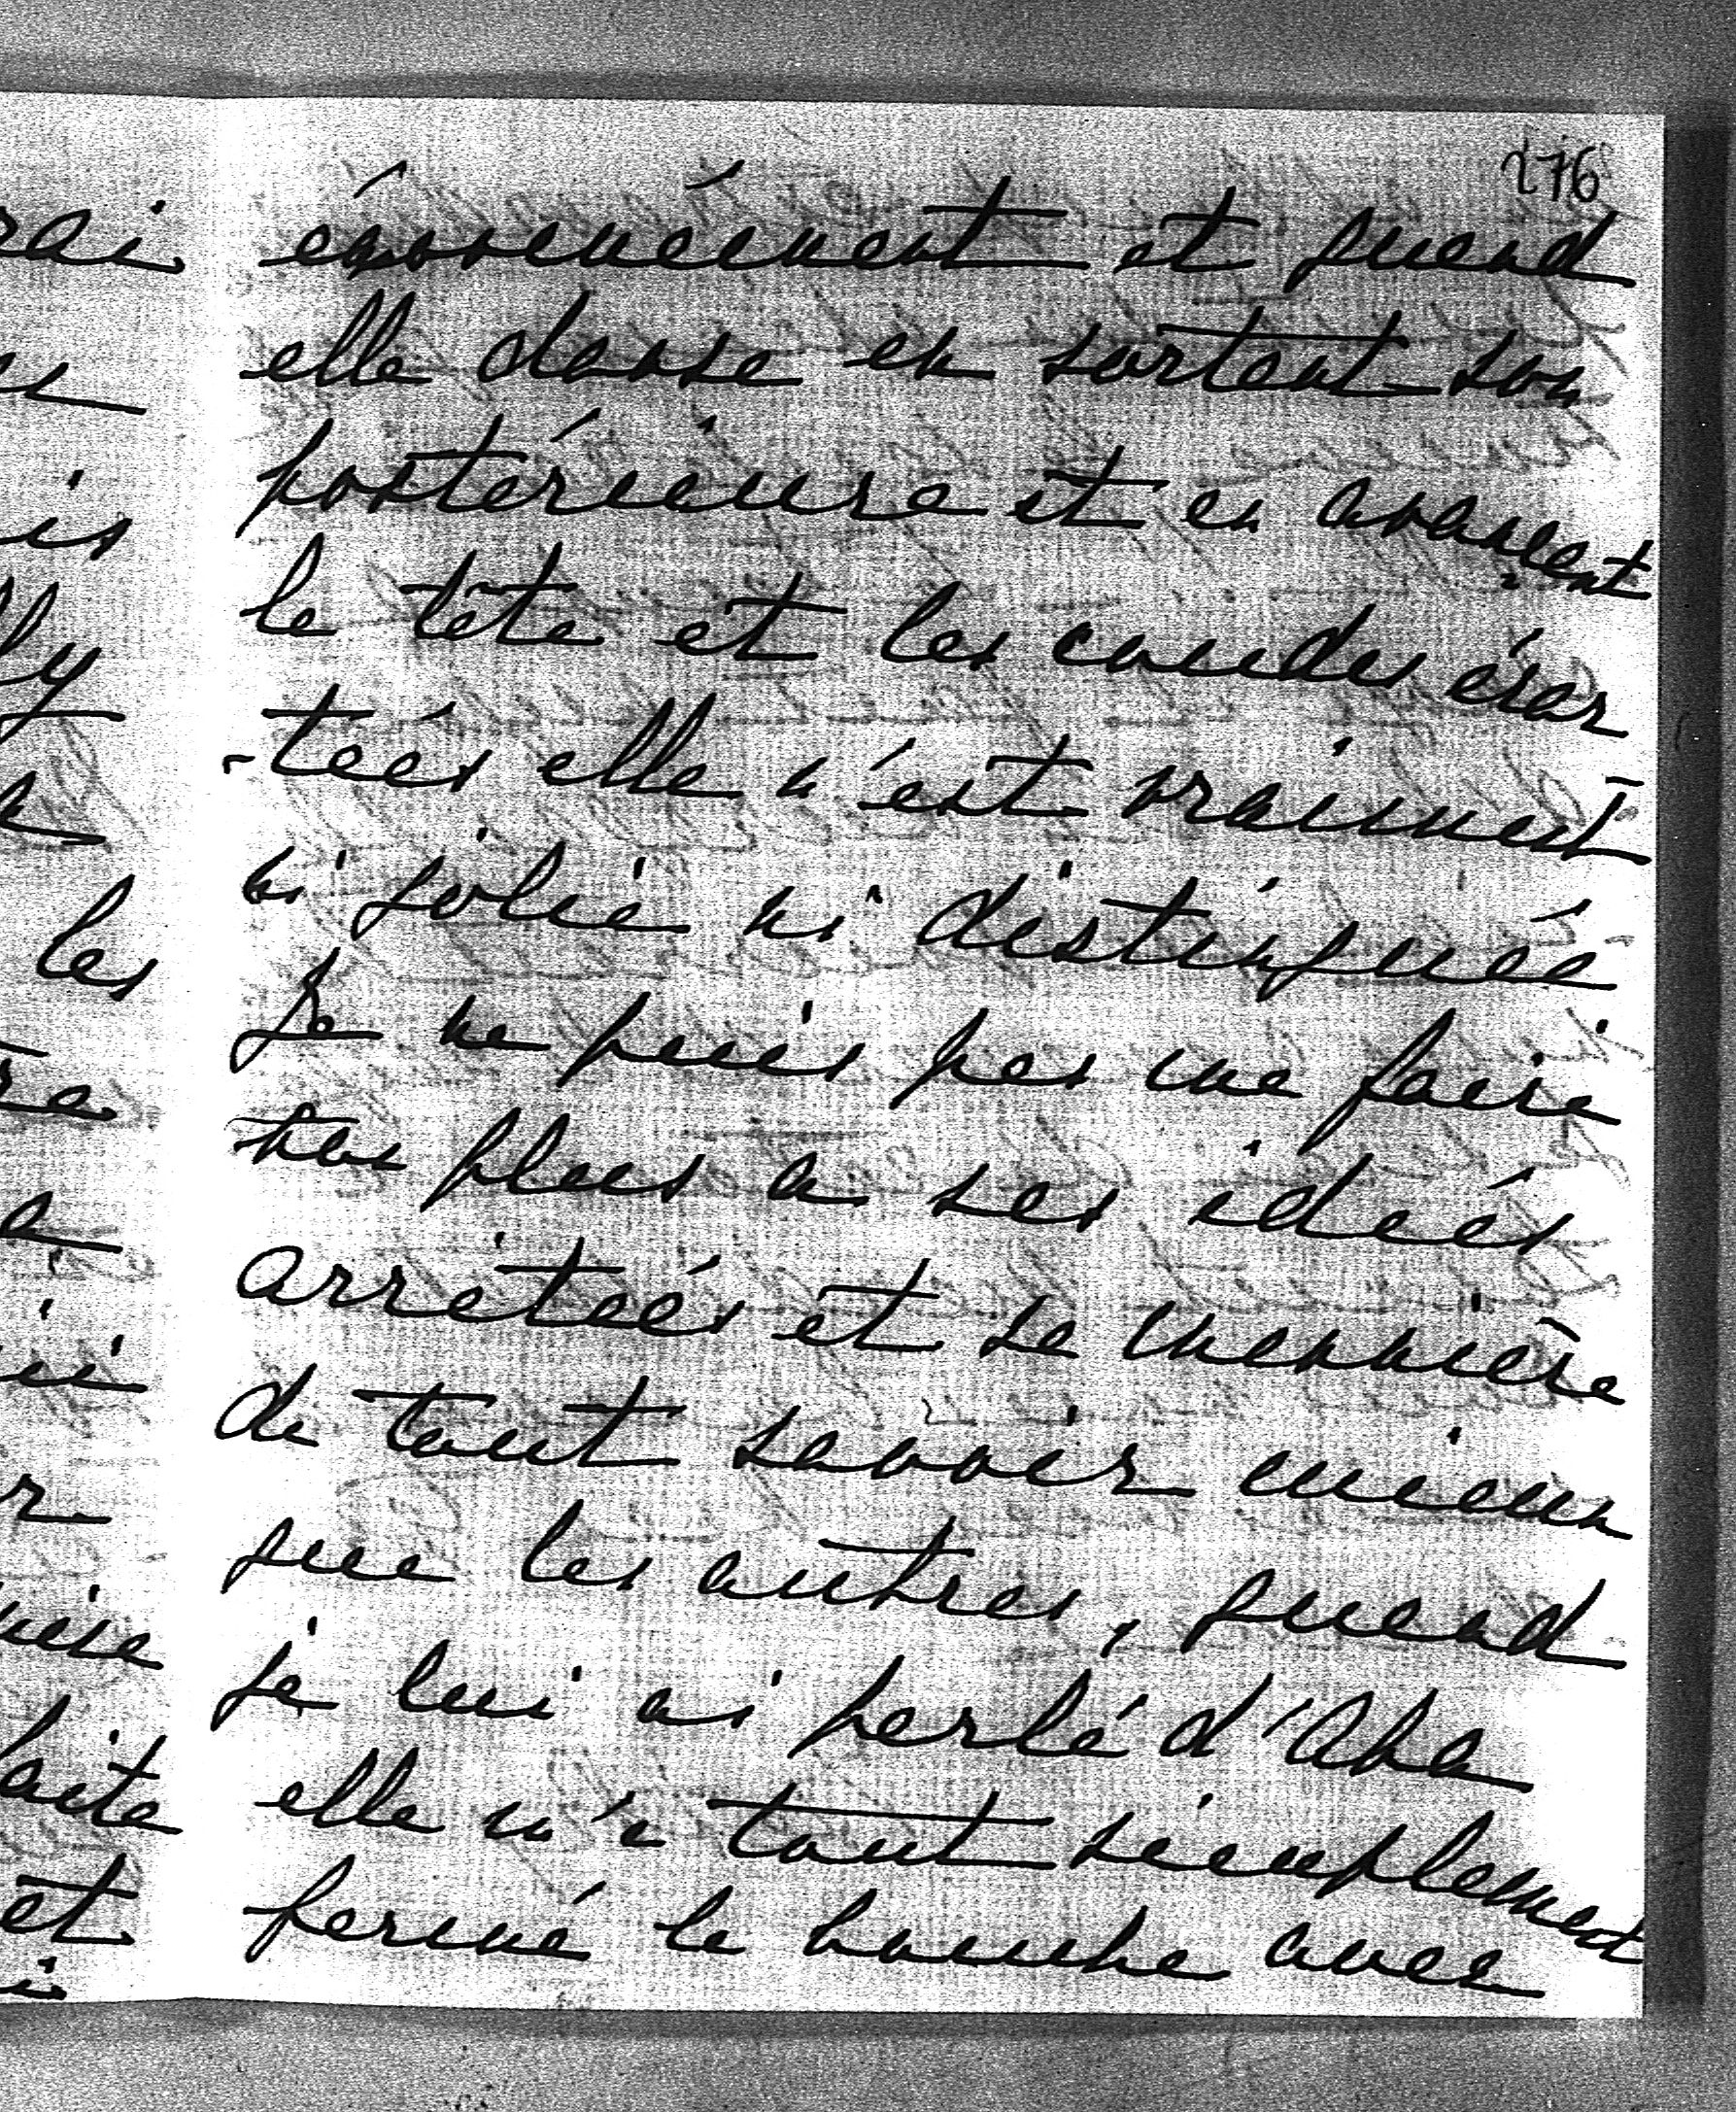 276
énormément et quand
elle danse en sortant son
postérieure et en avançant
la tête et les coudes écar
-tées elle n'est vraiment
ni jolie ni distinguée
Je ne puis pas me faire
non plus a ses idées
arrêtées et sa mannière
de tout savoir mieux
que les autres, quand
je lui ai parlé d'
elle m'a tout simplement
fermé la bouche avec
rai
is
ly
les
et